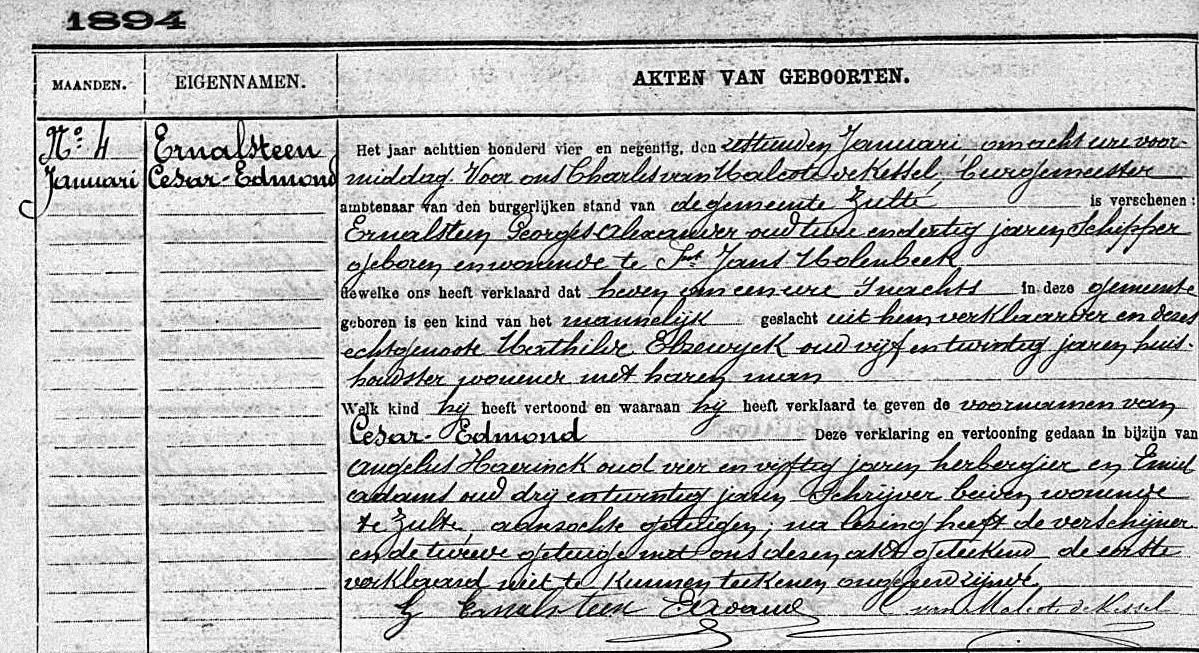 1894
MAANDEN. EIGENNAMEN. AKTEN VAN GEBOORTEN.
No. 4 Ernalsteen Het jaar achttien honderd vier en negentig, den Januari om acht ure voor-
Januari Cesar-Edmond middag Voor ons Charles van Malcote de Kessel, burgemeester
ambtenaar van den burgerlijken stand van de gemeente Zulte is verschenen:
Ernalsteen Georges Alexander oud twee en dertig jaren, Schipper
geboren en wonende te Sint Jans Molenbeek
dewelke ons heeft verklaard dat heden om een ure 's nachts in deze gemeente
geboren is een kind van het mannelijk geslacht uit hem verklaarder en dezes
echtgenoote Mathilde Elsewyck oud vijf en twintig jaren, huis-
houdster wonende met haren man
Welk kind hij heeft vertoond en waaraan hij heeft verklaard te geven de voornamen van
Cesar-Edmond Deze verklaring en vertooning gedaan in bijzijn van
Angelus Haerinck oud vier en vijftig jaren, herbergier en Emiel
Adams oud drij en twintig jaren, Schrijver beiden wonende
te Zulte aanzochte getuigen; na lezing heeft de verschijner
en de tweede getuige met ons dezen akt geteekend de eerste
verklaard niet te kunnen teekenen, ongeleerd zijnde.
G Ernalsteen C van Malcote de Kessel